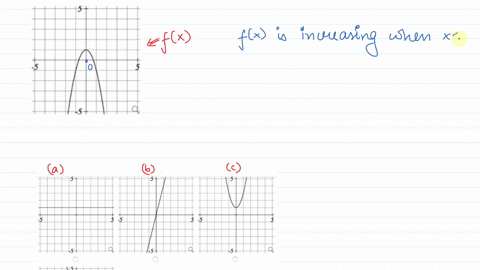 5
f(x) is increasing when x<
← f(x)
-5
0
5
-5
(a)
(b)
(c)
5
5
5
-5
5
-5
5
-5
5
-5
-5
-5
.5